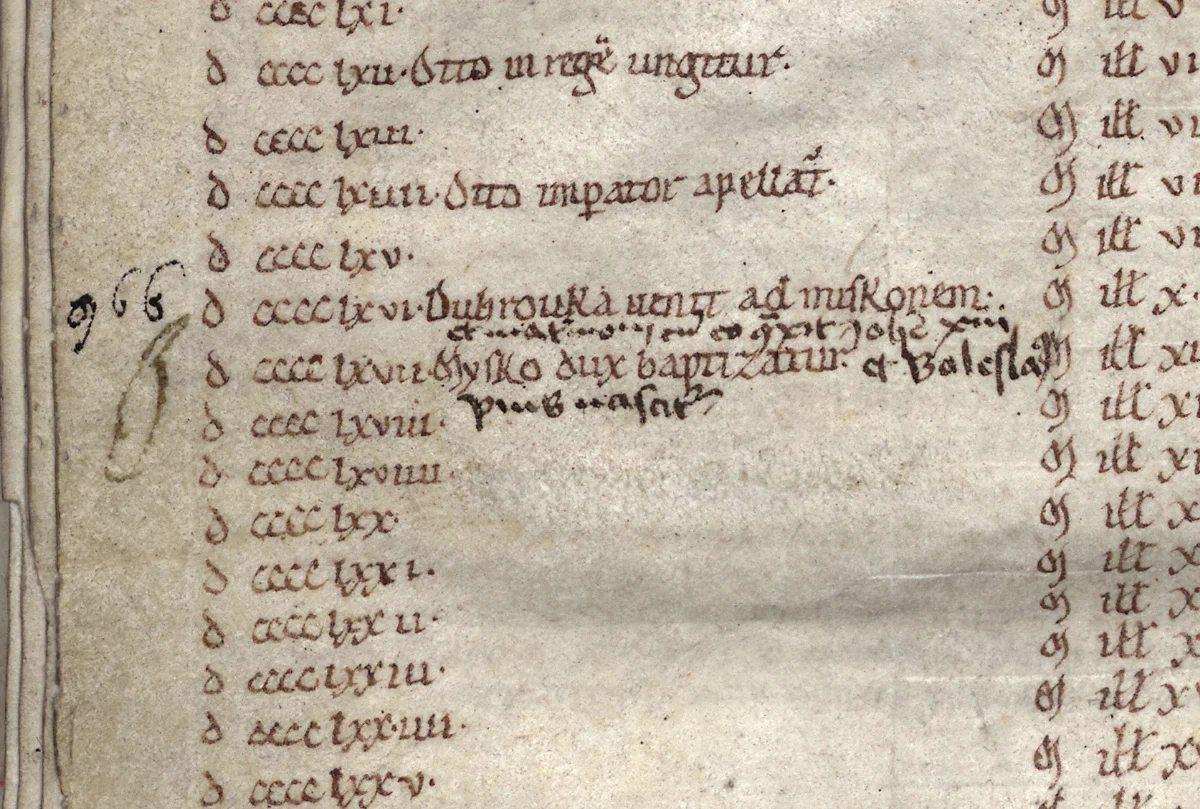 d cccc lxi·
d cccc lxii· Otto in regē ungitur.
d cccc lxiii·
d cccc lxiiii· Otto imꝑator apellat̄.
d cccc lxv·
966
d cccc lxvi· Dubrouka uenit ad miskonem.
et cū eo Johē xiii
d cccc lxvii· Mysko dux baptizatur. et Boleslaꝰ
pius nascit̄
d cccc lxviii·
d cccc lxviiii·
d cccc lxx·
d cccc lxxi·
d cccc lxxii·
d cccc lxxiii·
d cccc lxxiiii·
d cccc lxxv·
m ill v
m ill vi
m ill vi
m ill vi
m ill vi
m ill x
m ill xi
m ill xi
m ill xi
m ill x
m ill x
m ill x
m ill x
m ill x
m ill x
m ill x